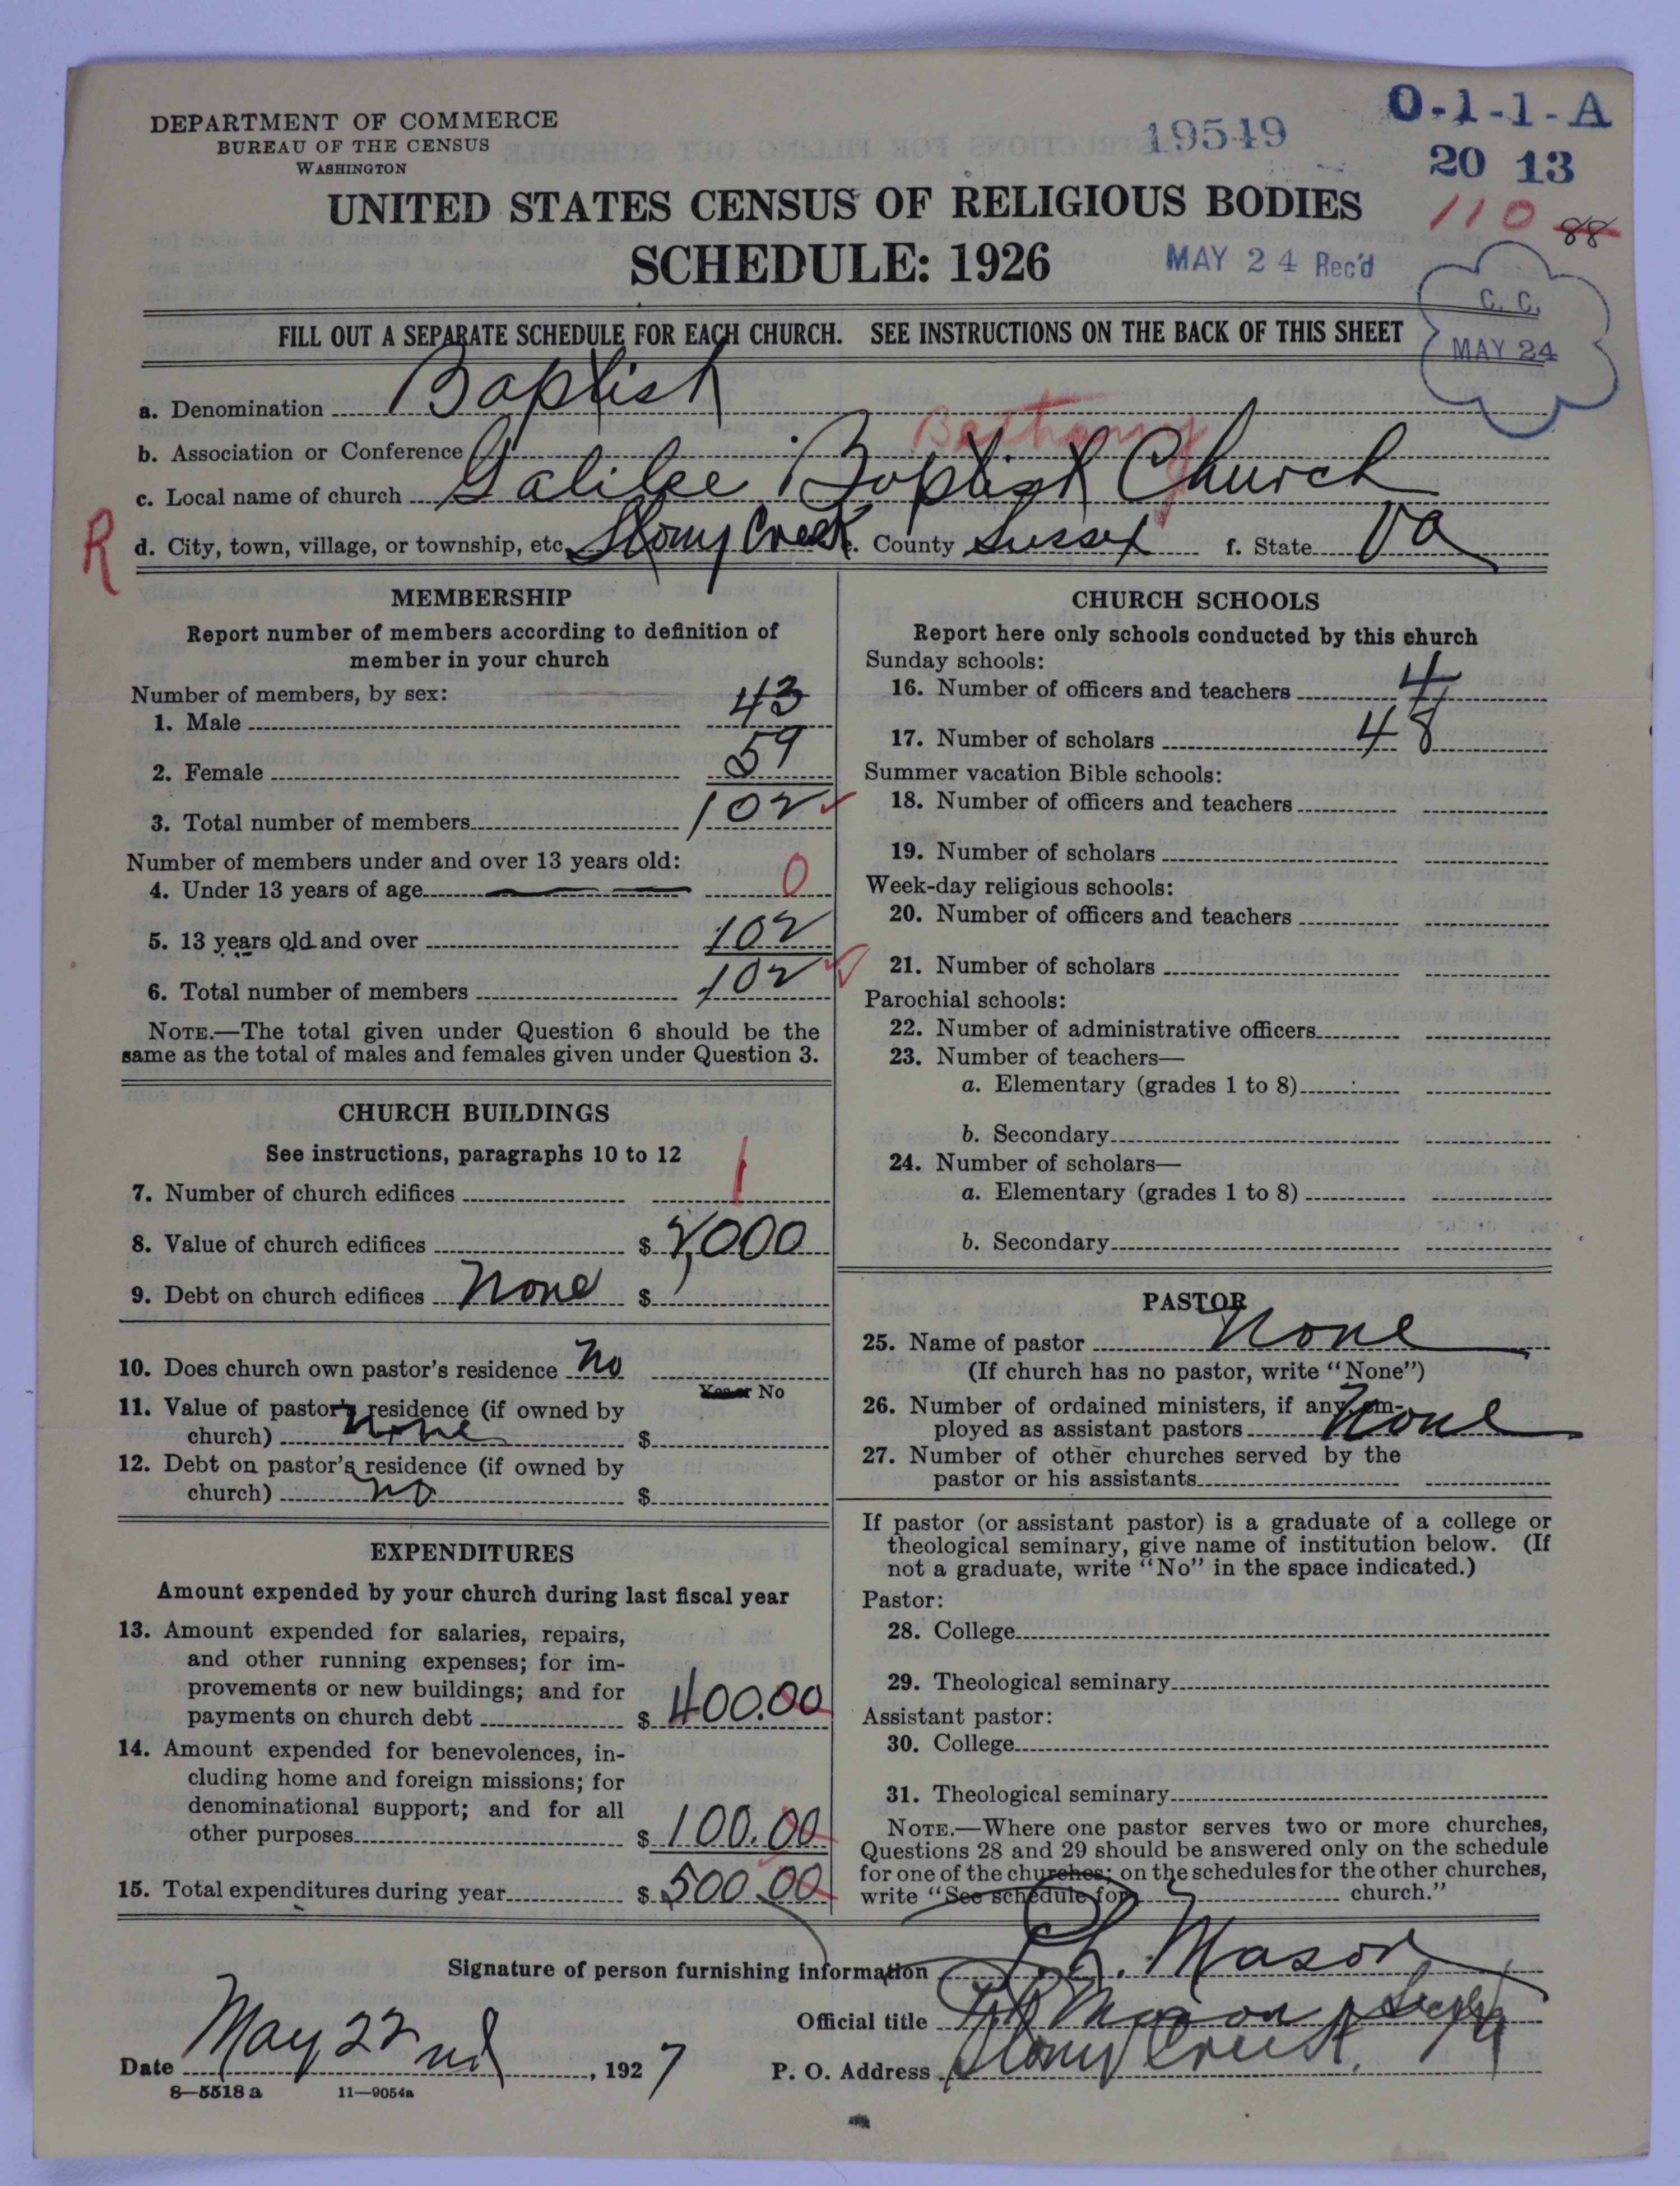 DEPARTMENT OF COMMERCE
BUREAU OF THE CENSUS
WASHINGTON
19549
O-1-1-A
20 13
110 88
UNITED STATES CENSUS OF RELIGIOUS BODIES
SCHEDULE: 1926
MAY 24 Rec'd
C. C.
MAY 24
FILL OUT A SEPARATE SCHEDULE FOR EACH CHURCH. SEE INSTRUCTIONS ON THE BACK OF THIS SHEET
a. Denomination Baptist
b. Association or Conference Bethany
c. Local name of church Galilee Baptist Church
R
d. City, town, village, or township, etc. Stony Creek e. County Sussex f. State Va
MEMBERSHIP
Report number of members according to definition of
member in your church
Number of members, by sex:
1. Male 43
2. Female 59
3. Total number of members 102
Number of members under and over 13 years old:
4. Under 13 years of age 0
5. 13 years old and over 102
6. Total number of members 102
NOTE.—The total given under Question 6 should be the
same as the total of males and females given under Question 3.
CHURCH BUILDINGS
See instructions, paragraphs 10 to 12
7. Number of church edifices 1
8. Value of church edifices $ 2,000
9. Debt on church edifices None $
10. Does church own pastor's residence no
Yes or No
11. Value of pastor's residence (if owned by
church) none $
12. Debt on pastor's residence (if owned by
church) no $
EXPENDITURES
Amount expended by your church during last fiscal year
13. Amount expended for salaries, repairs,
and other running expenses; for im-
provements or new buildings; and for
payments on church debt $ 400.00
14. Amount expended for benevolences, in-
cluding home and foreign missions; for
denominational support; and for all
other purposes $ 100.00
15. Total expenditures during year $ 500.00
CHURCH SCHOOLS
Report here only schools conducted by this church
Sunday schools:
16. Number of officers and teachers 4
17. Number of scholars 48
Summer vacation Bible schools:
18. Number of officers and teachers
19. Number of scholars
Week-day religious schools:
20. Number of officers and teachers
21. Number of scholars
Parochial schools:
22. Number of administrative officers
23. Number of teachers—
a. Elementary (grades 1 to 8)
b. Secondary
24. Number of scholars—
a. Elementary (grades 1 to 8)
b. Secondary
PASTOR
25. Name of pastor None
(If church has no pastor, write "None")
26. Number of ordained ministers, if any, em-
ployed as assistant pastors None
27. Number of other churches served by the
pastor or his assistants
If pastor (or assistant pastor) is a graduate of a college or
theological seminary, give name of institution below. (If
not a graduate, write "No" in the space indicated.)
Pastor:
28. College
29. Theological seminary
Assistant pastor:
30. College
31. Theological seminary
NOTE.—Where one pastor serves two or more churches,
Questions 28 and 29 should be answered only on the schedule
for one of the churches; on the schedules for the other churches,
write "See schedule for church."
Signature of person furnishing information Mason
Official title Mason
Date May 22nd, 1927 P. O. Address Stony Creek
8—5518 a 11—9054a